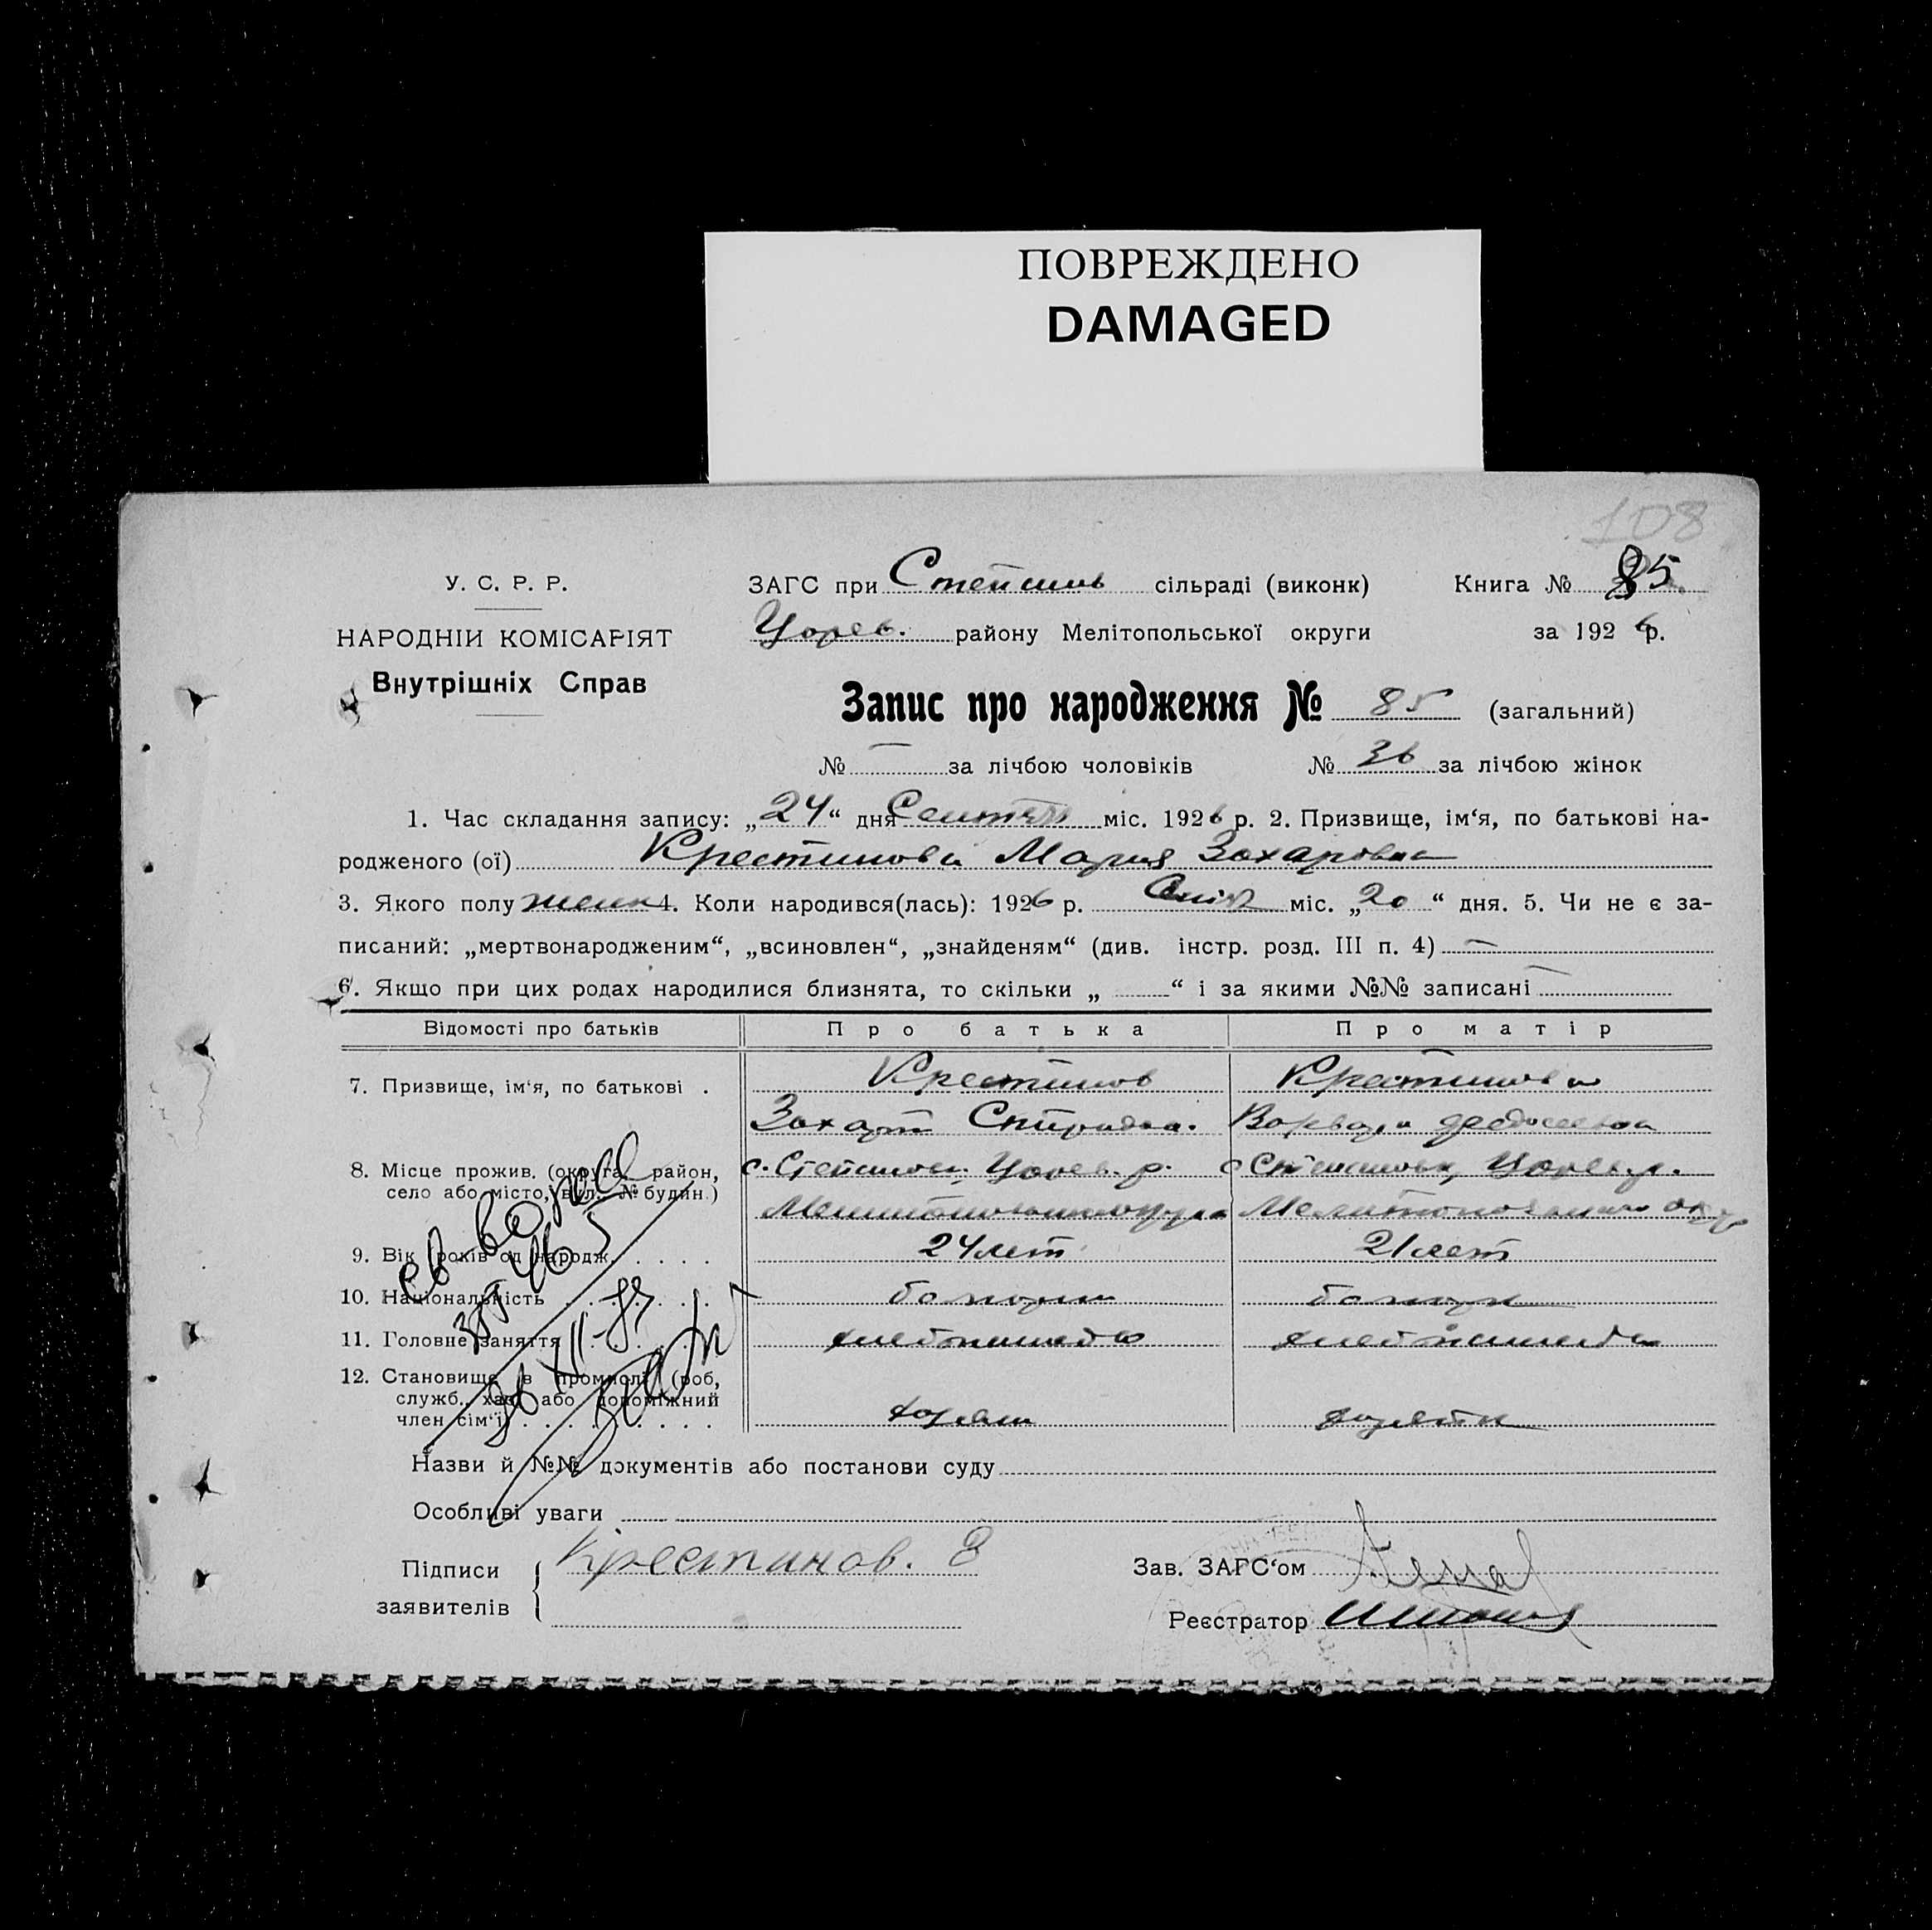 ПОВРЕЖДЕНО
DAMAGED
108
У. С. Р. Р.
ЗАГС при Степанов сільраді (виконк) Книга № 85
НАРОДНІИ КОМІСАРІЯТ
Царев. району Мелітопольської округи за 1926 р.
Внутрішніх Справ
Запис про народження № 85 (загальний)
№ — за лічбою чоловіків № 36 за лічбою жінок
1. Час складання запису: „24“ дня міс. 1926 р. 2. Призвище, ім‘я, по батькові на-
родженого (ої) Крестинова Мария Захаровна
3. Якого полу женк 4. Коли народився(лась): 1926 р. міс. „20“ дня. 5. Чи не є за-
писаний: „мертвонародженим“, „всиновлен“, „знайденям“ (див. інстр. розд. III п. 4) —
6. Якщо при цих родах народилися близнята, то скільки „ “ і за якими №№ записані —
Відомості про батьків Про батька Про матір
7. Призвище, ім‘я, по батькові . Крестинов Крестинова
Захар Спиридон. Варвара Федосеевна
8. Місце прожив. (округа, район, с. Степановк. Царев. р. с Степановк, Царев. р.
село або місто, вул. № будин.)
Мелитопольск округа Мелитопольского окр
9. Вік (років од народж. . . . . 24 лет 21 лет
10. Національність . . . . . . болгарин болгарк
11. Головне заняття . . . . . хлебопашество хлебопашество
12. Становище в промислі (роб,
служб., хаз. або допоміжний
член сім‘ї) . . . . . . . . хозяин
Назви й №№ документів або постанови суду
Особливі уваги
Підписи Крестинов. З Зав. ЗАГС‘ом
заявителів
Реєстратор